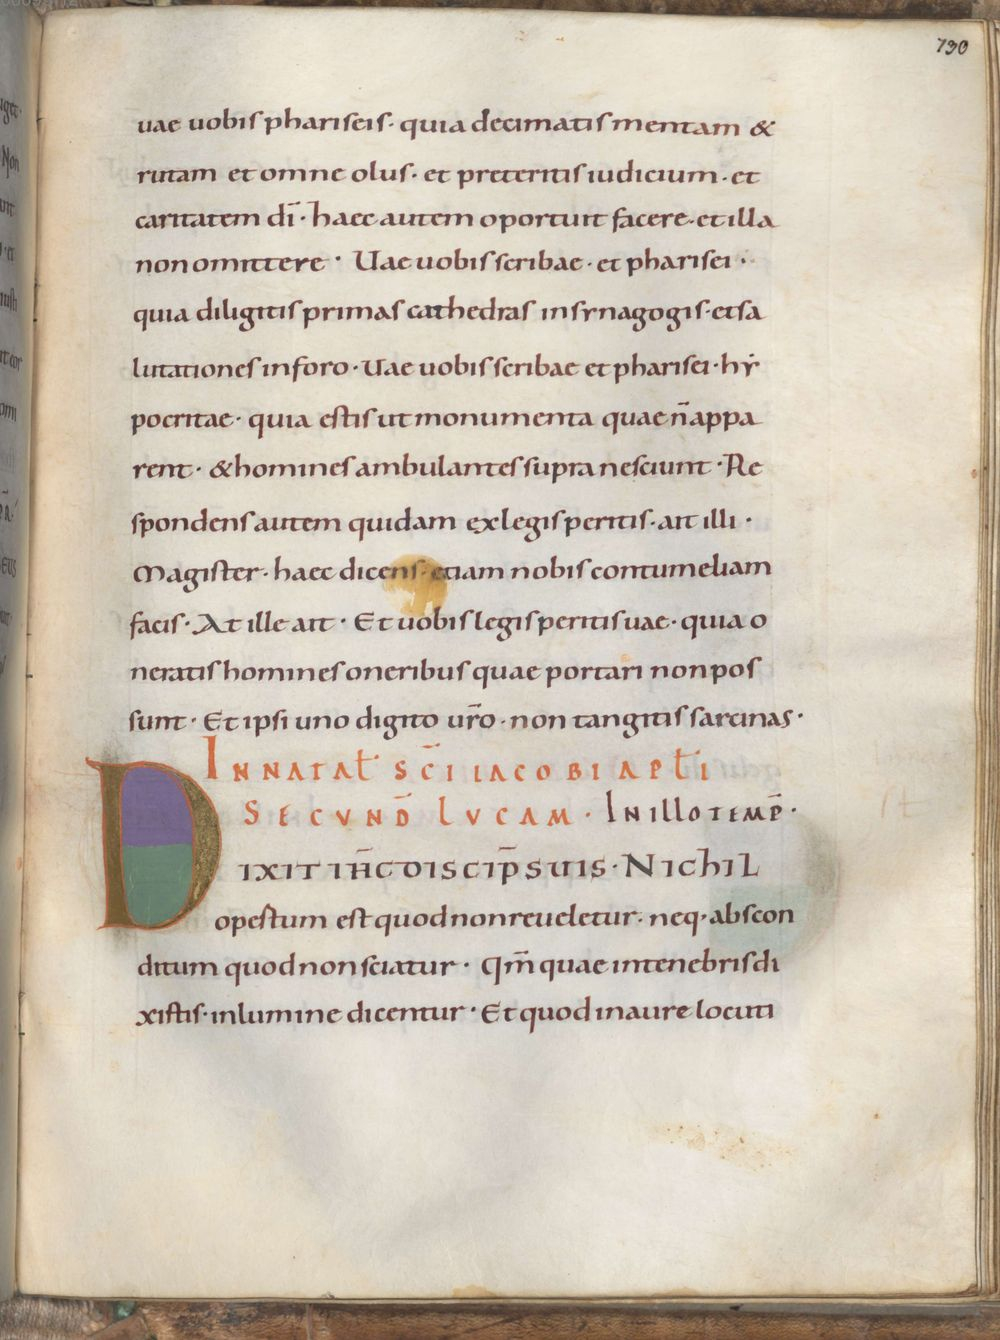 130
uae uobis phariseis· quia decimatis mentam &
rutam et omne olus· et preteritis iudicium· et
caritatem dī· haec autem oportuit facere· et illa
non omittere· Uae uobis scribae· et pharisei·
quia diligitis primas cathedras in synagogis· et sa
lutationes in foro· Uae uobis scribae et pharisei· hy
pocritae· quia estis ut monumenta quae n̄ appa
rent· & homines ambulantes supra nesciunt· Re
spondens autem quidam ex legis peritis· ait illi·
Magister· haec dicens· etiam nobis contumeliam
facis· At ille ait· Et uobis legis peritis uae· quia o
neratis homines oneribus quae portari non pos
sunt· Et ipsi uno digito ur̄o· non tangitis sarcinas·
IN NATAT SC̄I IACOBI APTI
SECUND̄ LUCAM· IN ILLO TEMP̄·
DIXIT IH̄C DISCIP̄ SUIS· NICHIL
opestum est quod non reueletur· neq· abscon
ditum quod non sciatur· Qm̄ quae in tenebris di
xistis· in lumine dicentur· Et quod in aure locuti